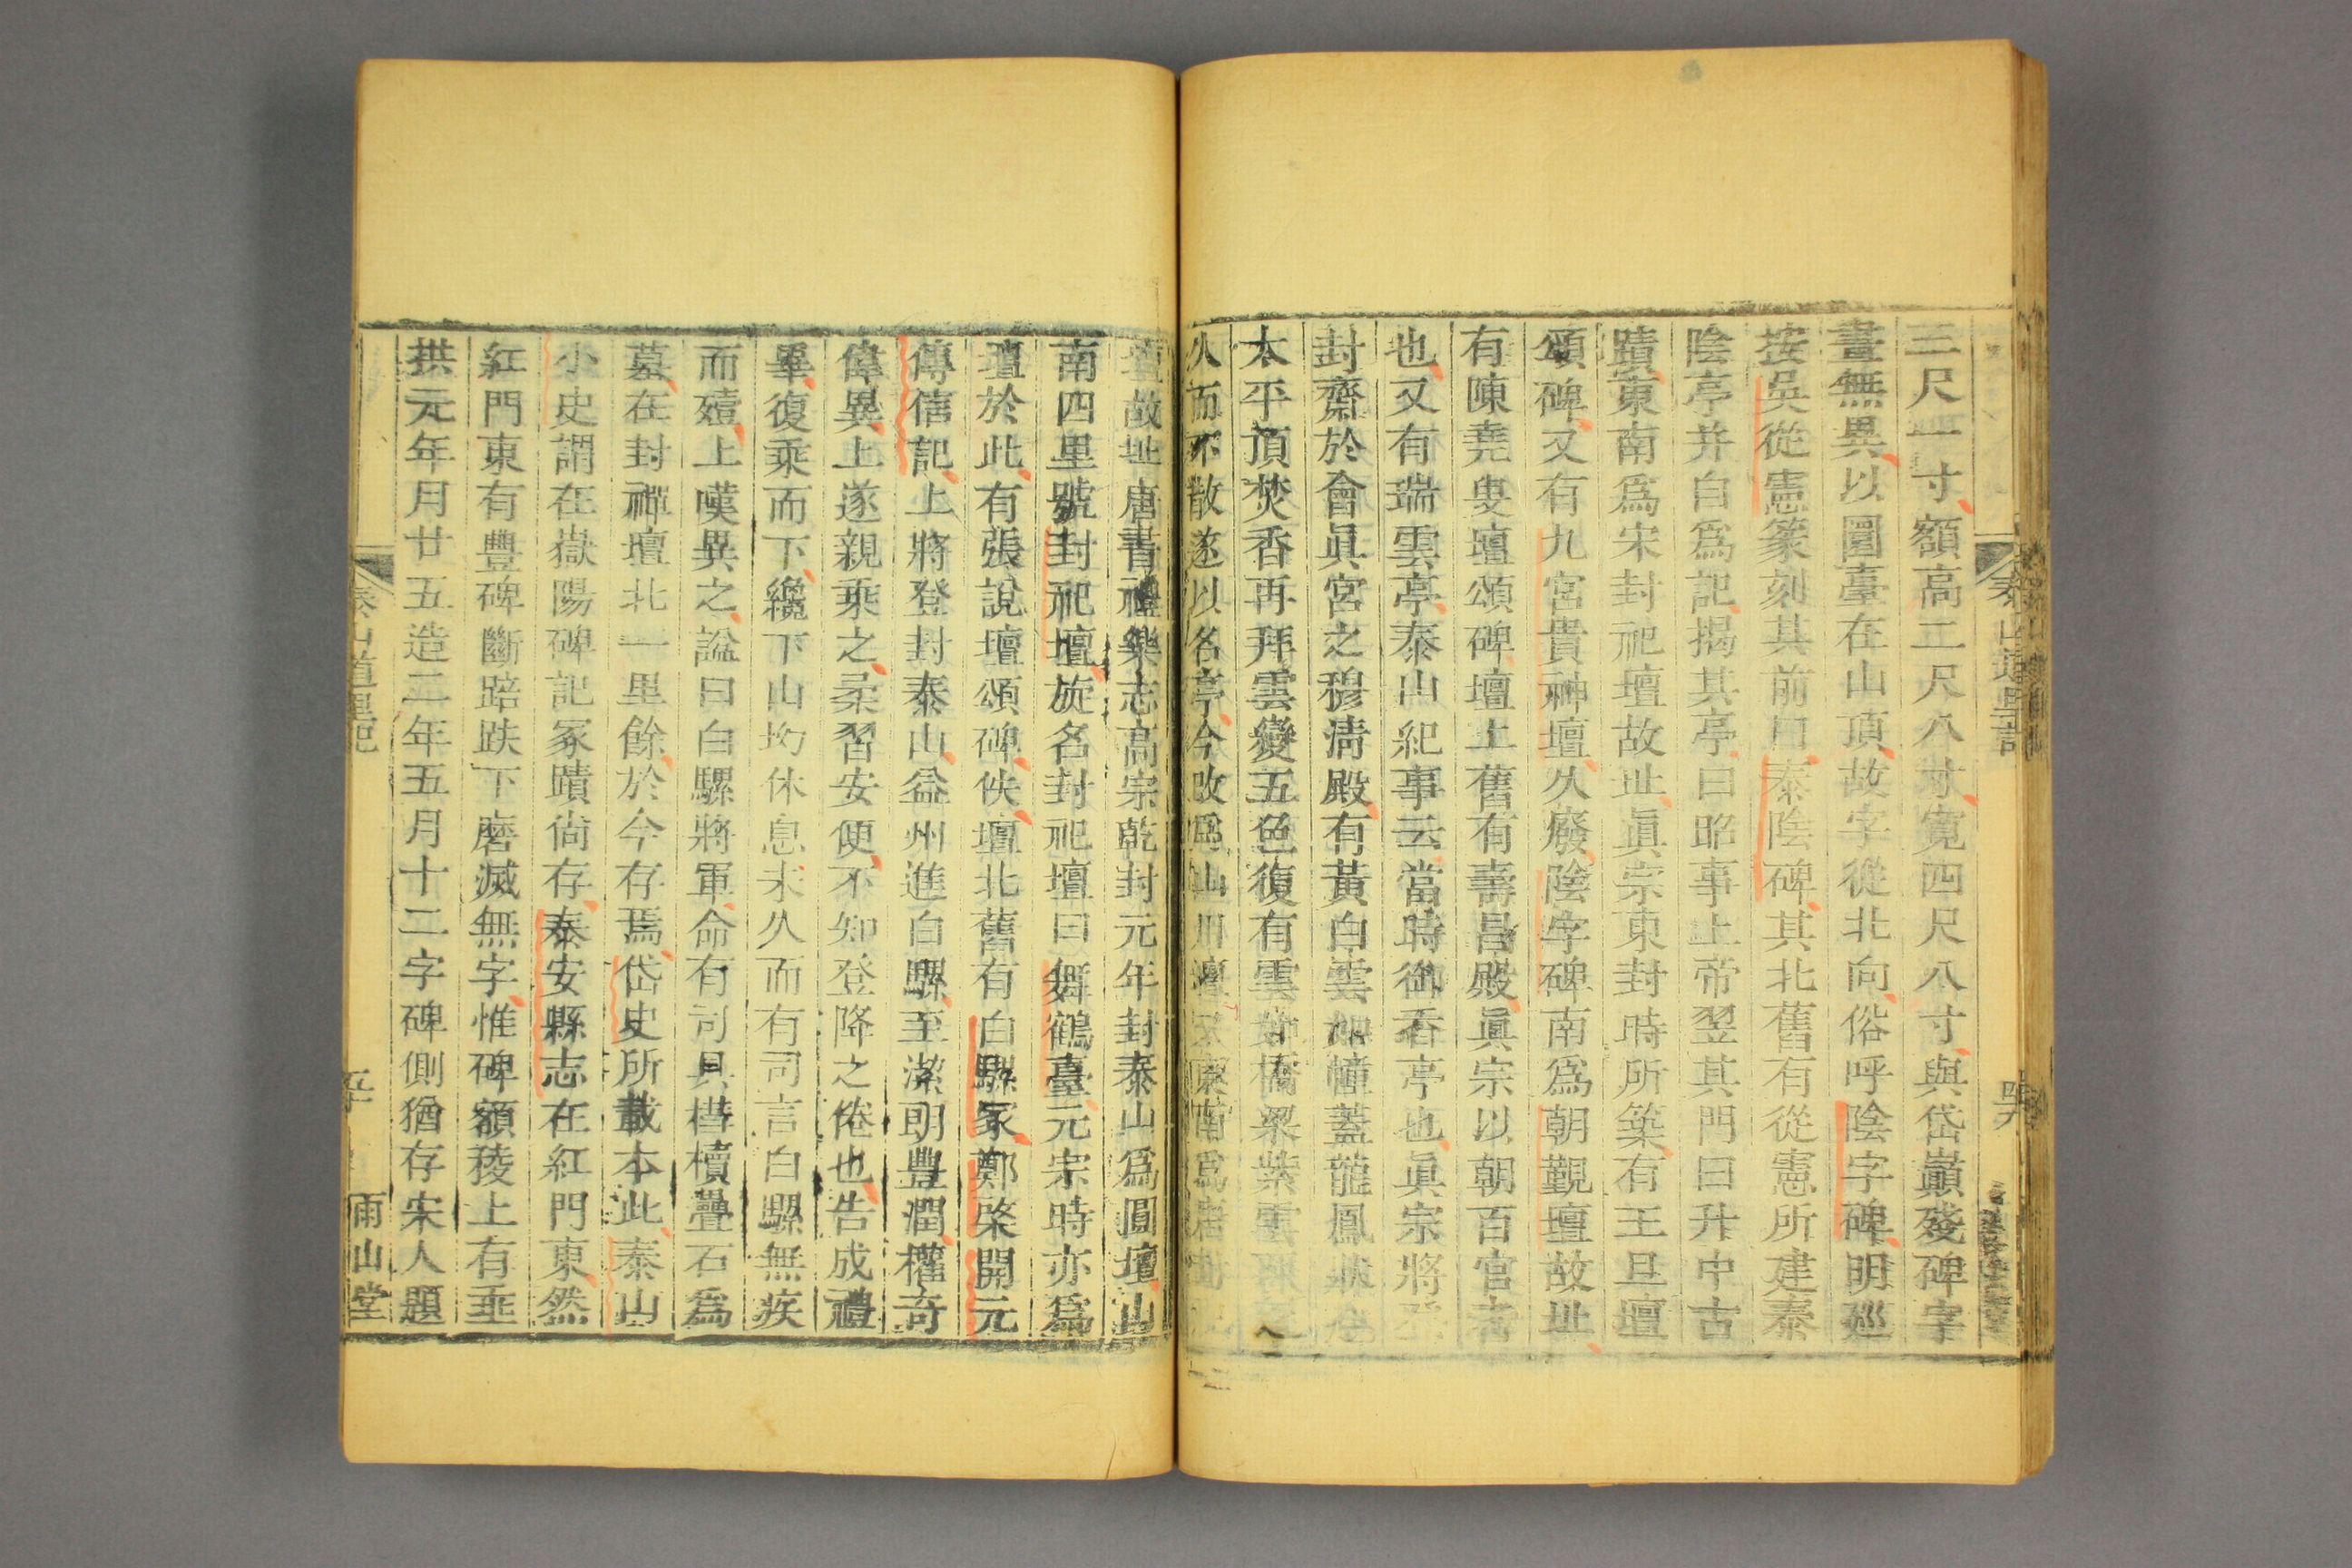 泰山道里記
三尺一寸額高二尺八寸寬四尺八寸與岱巔殘碑字
畫無異以圜臺在山頂故字從北向俗呼陰字碑明巡
按吳從憲篆刻其前曰泰陰碑其北舊有從憲所建泰
陰亭并自爲記揭其亭曰昭事上帝翌其門曰升中古
蹟東南爲宋封祀壇故址眞宗東封時所築有王旦壇
頌碑又有九宮貴神壇久廢陰字碑南爲朝覲壇故址
有陳堯叟壇頌碑壇上舊有壽昌殿眞宗以朝百官者
也又有瑞雲亭泰山紀事云當時御香亭也眞宗將
封齋於會眞宮之穆淸殿有黃白雲如幢蓋龍鳳狀
太平頂焚香再拜雲變五色復有雲如橋梁紫雲
久而不散遂以名亭今改爲山川壇又東南爲唐
壇故址唐書禮樂志高宗乾封元年封泰山爲圓壇山
南四里號封祀壇旋名封祀壇曰舞鶴臺元宗時亦爲
壇於此有張說壇頌碑佚壇北舊有白騾冢鄭棨開元
傳信記上將登封泰山益州進白騾至潔朙豐潤權奇
偉異上遂親乘之柔習安便不知登降之倦也告成禮
畢復乘而下纔下山坳休息未久而有司言白騾無疾
而殪上嘆異之謚曰白騾將軍命有司具槥櫝疊石爲
墓在封禪壇北一里餘於今存焉岱史所載本此泰山
小史謂在嶽陽碑記冢蹟尙存泰安縣志在紅門東然
紅門東有豐碑斷踣趺下磨滅無字惟碑額稜上有垂
拱元年月廿五造二年五月十二字碑側猶存宋人題
泰山道里記
雨山堂